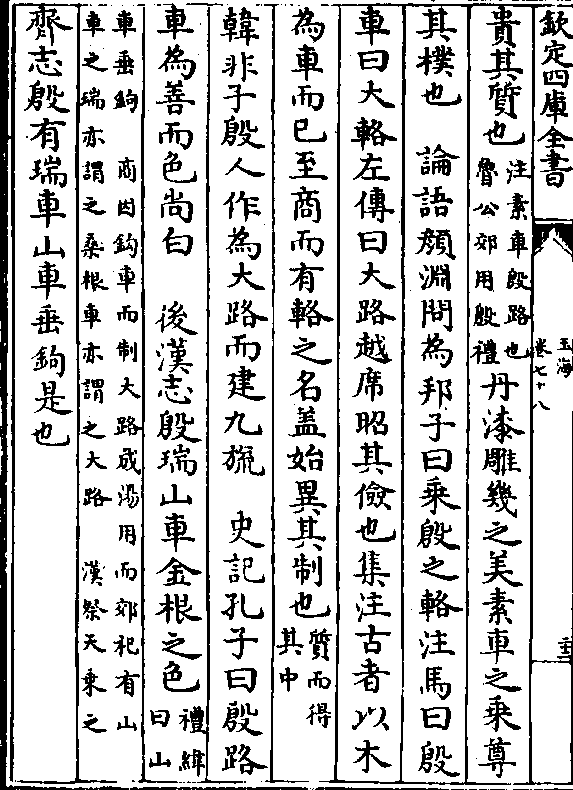 欽定四庫全書
玉海
卷七十八
貴其質也注素車殷路也魯公郊用殷禮丹漆雕幾之美素車之乘尊
其樸也　論語顏淵問為邦子曰乘殷之輅注馬曰殷
車曰大輅左傳曰大路越席昭其儉也集注古者以木
為車而已至商而有輅之名盖始異其制也質而得其中
韓非子殷人作為大路而建九旒　史記孔子曰殷路
車為善而色尚白　後漢志殷瑞山車金根之色禮緯曰山
車垂鉤　商因鉤車而制大路成湯用而郊祀有山
車之瑞亦謂之桑根車亦謂之大路　漢祭天乘之
齊志殷有瑞車山車垂鉤是也